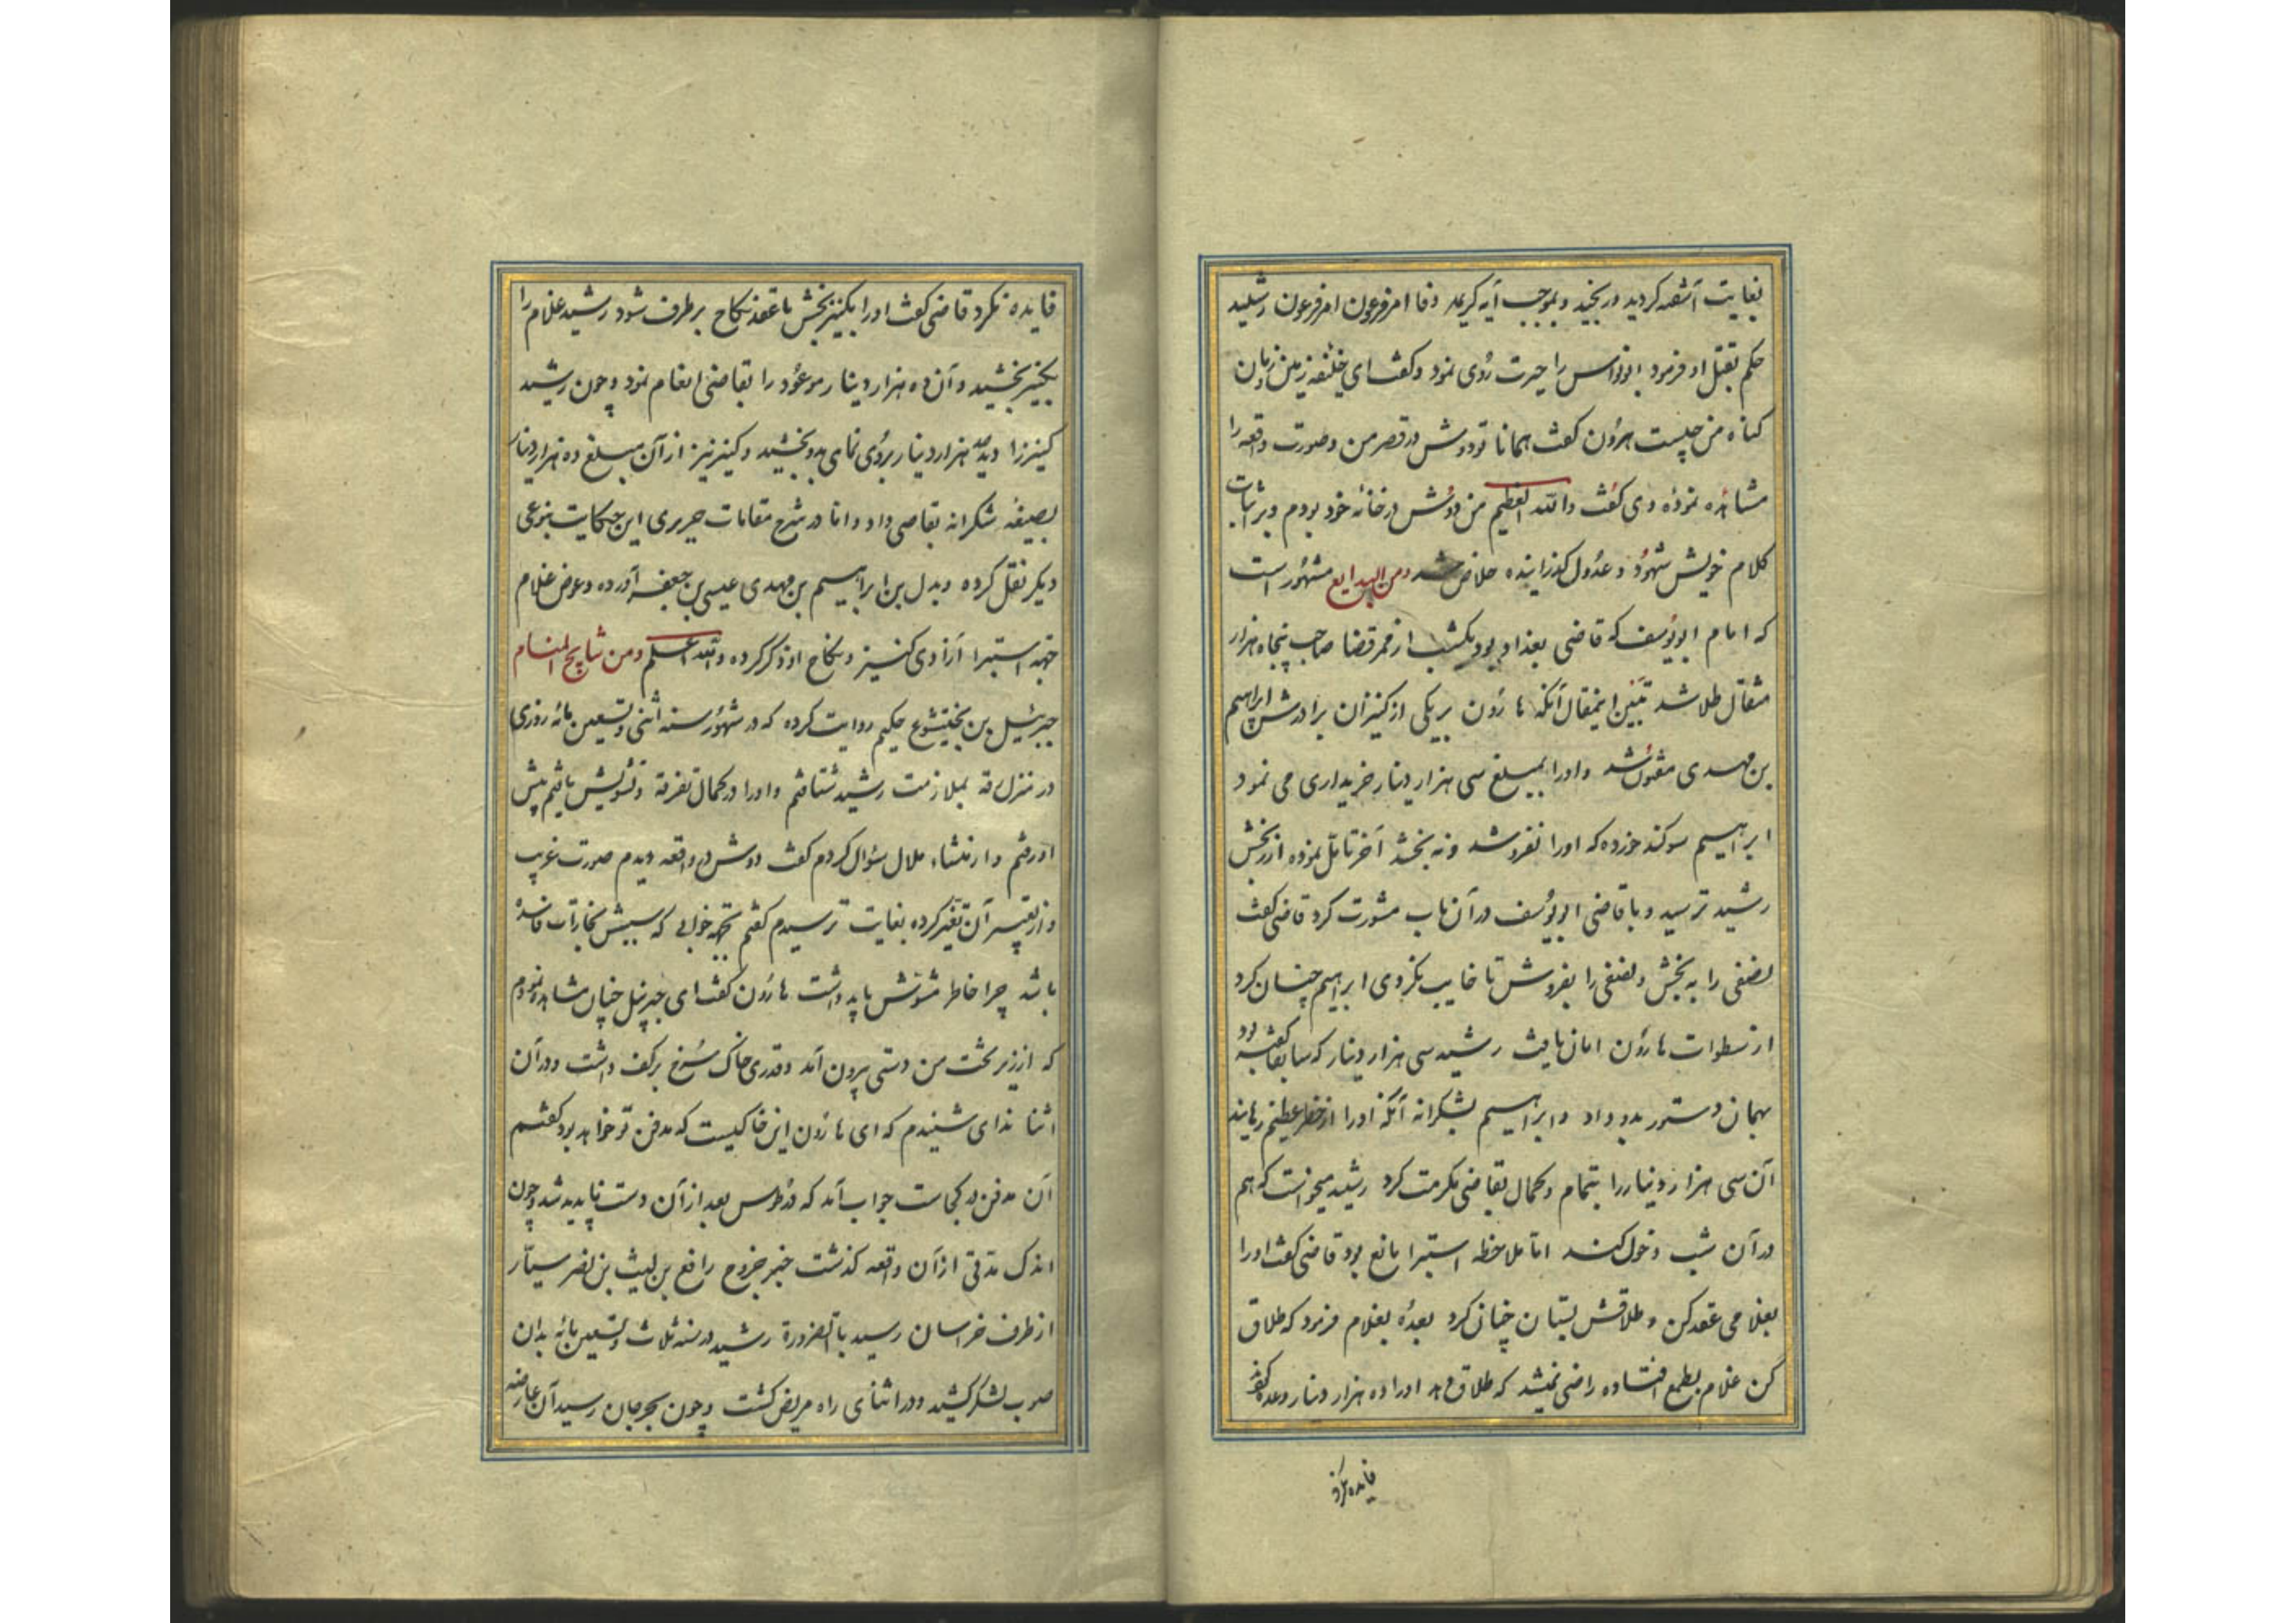 بغایت آشفته کردید و بموجب آیه کریمه وفا امر فرعون امر فرعون رشید
حکم بقتل او فرمود ابونواس را حیرت روی نمود و کفت ای خلیفه زمین و زمان
کناه من چیست هرون کفت همانا تو دوش در قصر من و صورت واقعه را
مشاهده نموده وی کفت والله العظیم من دوش در خانه خود بودم و بر اثبات
کلام خویش شهود و عدول کذرانیده خلاص شد ومن البدایع مشهور است
که امام ابویوسف که قاضی بغداد بود یکشب از ممر قضا صاحب پنجاه هزار
مثقال طلا شد تبیین اینمقال آنکه هارون بر یکی از کنیزان برادرش ابراهیم
بن مهدی مفتون شد و اورا بمبلغ سی هزار دینار خریداری می نمود
ابراهیم سوکند خورده که اورا نفروشد و نه بخشد آخر تامل نموده از رنجش
رشید ترسید و با قاضی ابویوسف در آن باب مشورت کرد قاضی کفت
نصفی را به بخش و نصفی را بفروش تا خایب نکردی ابراهیم چنان کرد
از سطوات هارون امان یافت رشید سی هزار دینار که سابقا کفته بود
بهمان دستور بدو داد و ابراهیم بشکرانه آنکه اورا از خطر عظیم رهانید
آن سی هزار دینار را بتمام و کمال بقاضی مکرمت کرد رشید میخواست که هم
در آن شب دخول کند اما ملاحظه استبرا مانع بود قاضی کفت اورا
بغلامی عقد کن و طلاقش بستان چنان کرد بعده بغلام فرمود که طلاق
کن غلام بطمع افتاده راضی نمیشد که طلاق دهد اورا ده هزار دینار وعده کفتند
فایده نکرد
فایده نکرد قاضی کفت اورا بکنیز بخش تا عقد نکاح برطرف شود رشید غلام را
بکنیز بخشید و آن ده هزار دینار موعود را بقاضی انعام نمود و چون رشید
کنیز را دید صد هزار دینار بروی نمای بدو بخشید و کنیز نیز از آن مبلغ ده هزار دینار
بصیغه شکرانه بقاضی داد و اما در شرح مقامات حریری این حکایت بنوعی
دیکر نقل کرده و بدل بن ابراهیم بن مهدی عیسی بن جعفر آورده و عوض غلام
جهه استبرا آزادی کنیز و نکاح او ذکر کرده والله اعلم ومن نتایج المنام
جبرئیل بن بختیشوع حکیم روایت کرده که در شهور سنه اثنی و تسعین مائه روزی
در منزل رقه بملازمت رشید شتافتم و اورا در کمال تفرقه و تشویش یافتم پیش
او رفتم و از منشاء ملال سؤال کردم کفت دوش در واقعه دیدم صورت غریب
و از تعبیر آن تغیر کرده بغایت ترسیدم کفتم جهه خوابی که سببش بخارات فاسده
باشد چرا خاطر مشوش باید داشت هارون کفت ای جبرئیل چنان مشاهده نمودم
که از زیر تخت من دستی بیرون آمد و قدری خاک سرخ بر کف داشت و در آن
اثنا ندای شنیدم که ای هارون این خاکیست که مدفن تو خواهد بود کفتم
آن مدفن در کجاست جواب آمد که در طوس بعد از آن دست ناپدید شد و چون
اندک مدتی از آن واقعه کذشت خبر خروج رافع بن لیث بن نصر سیار
از طرف خراسان رسید بالضرورة رشید در سنه ثلاث و تسعین مائه بدان
صوب لشکر کشید و در اثنای راه مریض کشت و چون بجرجان رسید آن عارضه